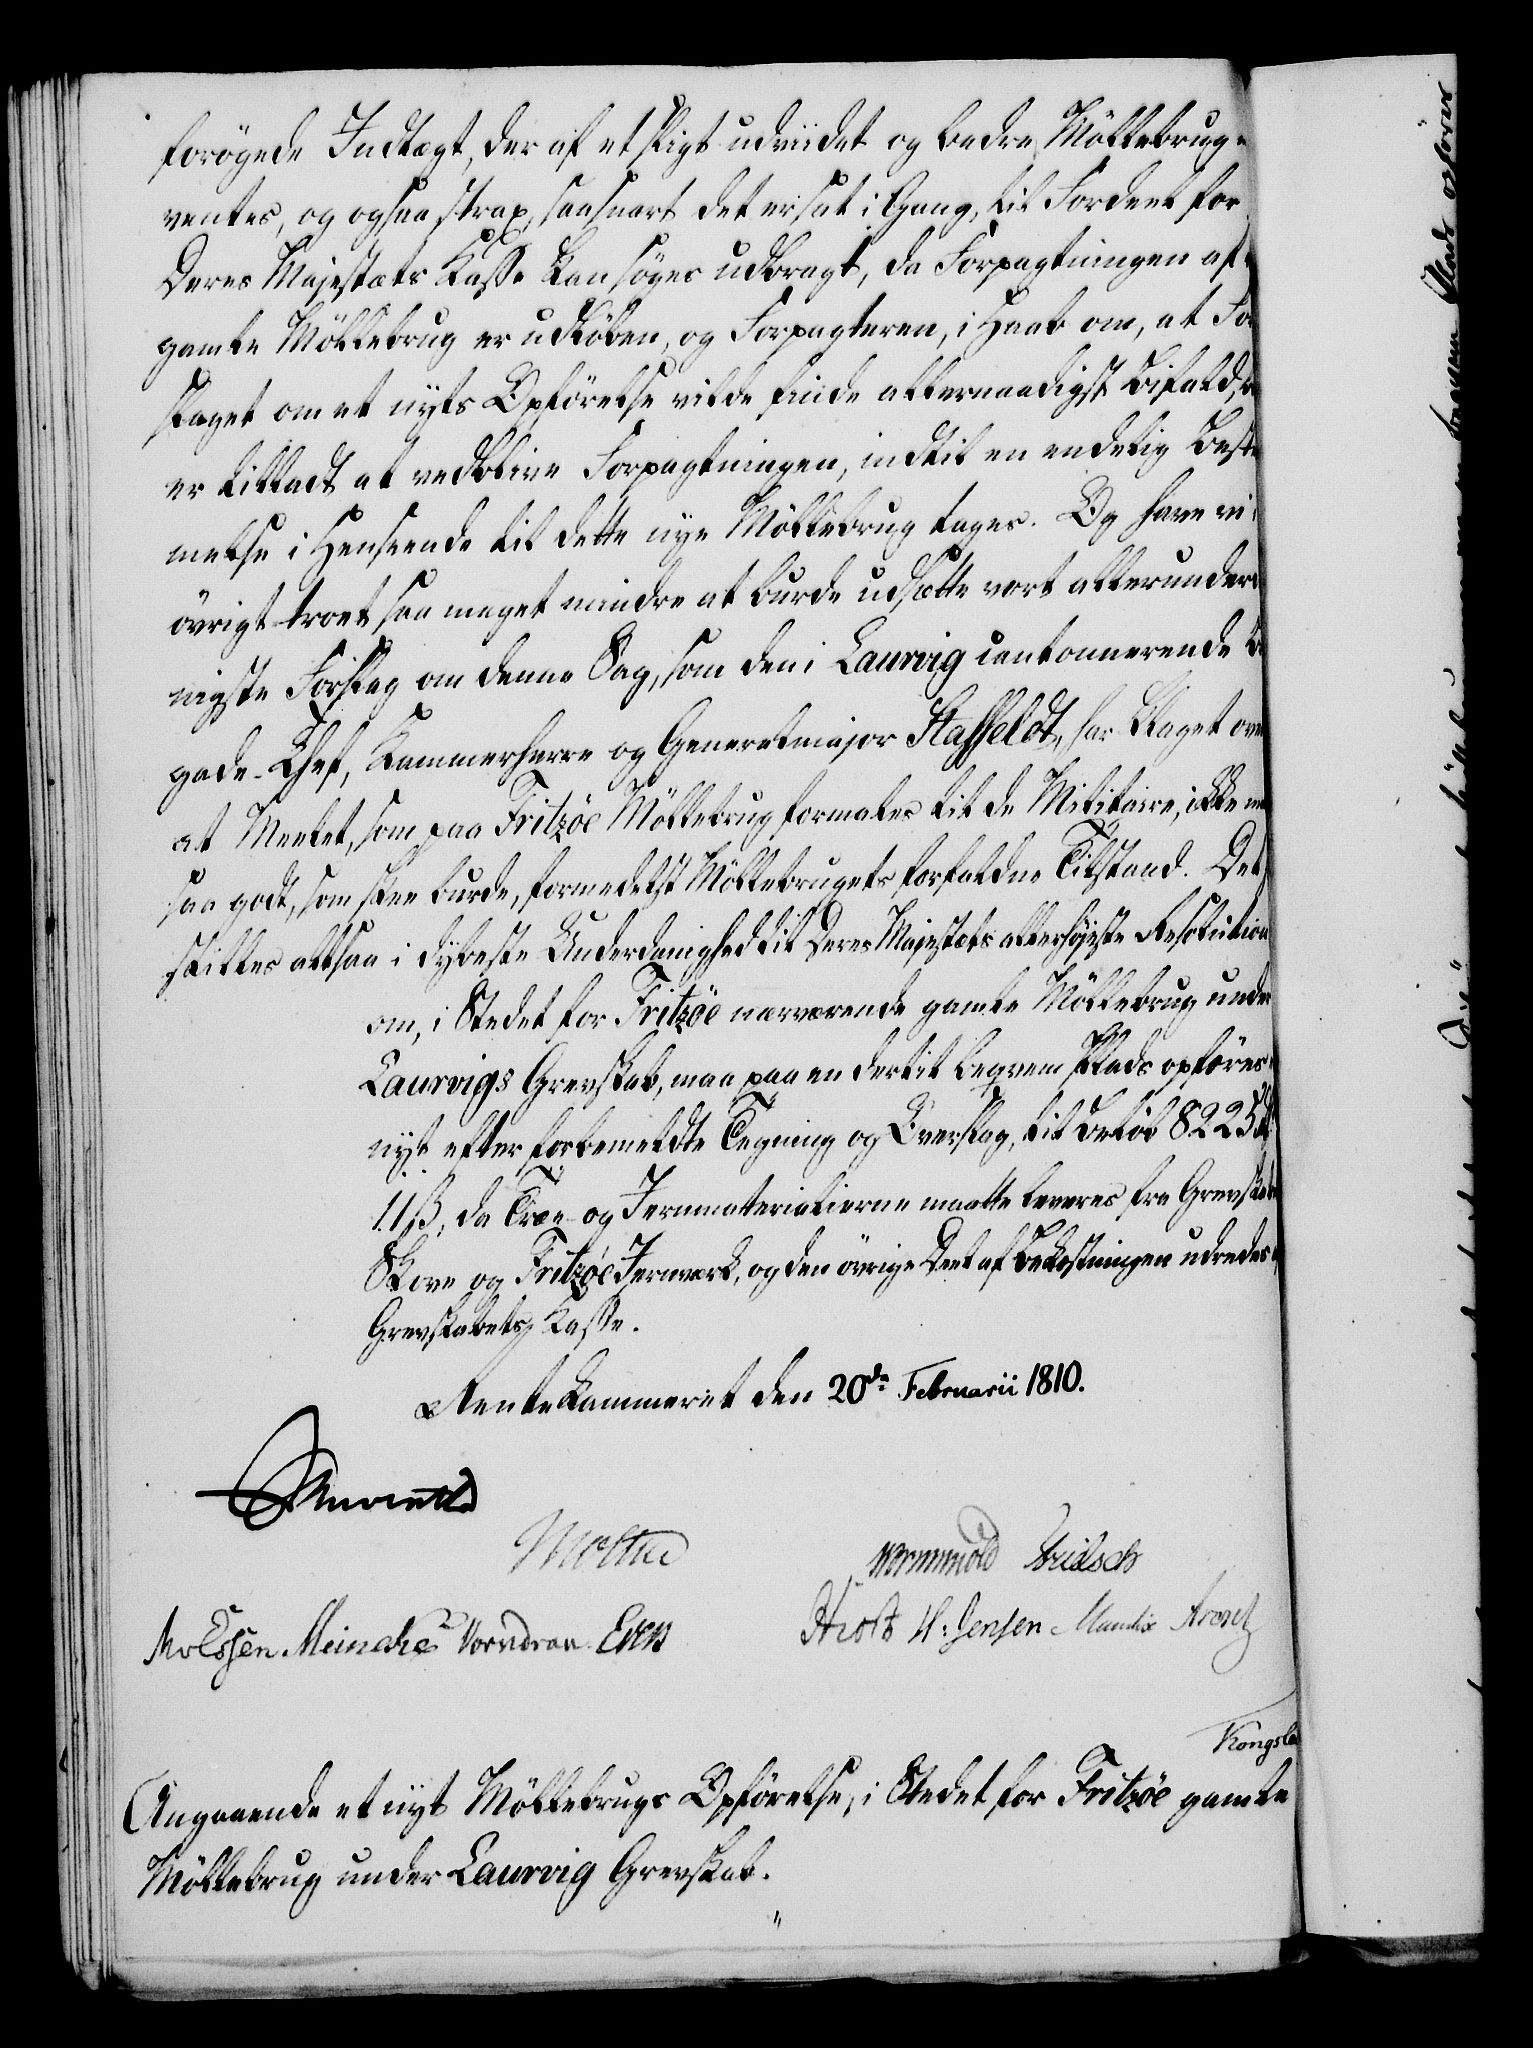 forøgede Indtægt, der af et sligt udviidet og bedre Møllebrug
ventes, og ogsaa strax, saasnart det er sat i Gang, til Fordeel for
Deres Majestæts Kasse kan søges udbragt, da Forpagtningen af
gamle Møllebrug er udløben, og Forpagteren, i Haab om, at For
slaget om et nyts Opførelse vilde finde allernaadigst Bifald,
er tilladt at vedblive Forpagtningen, indtil en endelig Beste
melse i Henseende til dette nye Møllebrug tages. Og have vi i
øvrigt troet saa meget mindre at burde udsætte vort allerunderd
nigste Forslag om denne Sag, som den i Laurvig cantonnerende Bri
gade-Chef, Kammerherre og Generalmajor Staffeldt, har klaget over
at Meelet, som paa Fritzöe Møllebrug formales til de Militaire, ikke
saa godt, som skee burde, formedelst Møllebrugets forfaldne Tilstand. Det
stilles altsaa i dybeste Underdanighed til Deres Majestæts allerhøjeste Resolution
om, i Stedet for Fritzöe nærværende gamle Møllebrug under
Laurvigs Grevskab, maa paa en dertil beqvem Plads opføres
nyt efter forbemeldte Tegning og Overslag, til Beløb 8225 rd
11 ß, da Træ- og Jernmaterialierne maatte leveres fra Grevskabets
Skove og Fritzöe Jernværk, og den øvrige Deel af Bekostningen udredes
Grevskabets Kasse.
Rentekammeret den 20de Februarii 1810.
Moltke
Wormskiold Fridsch
M v Essen. Meincke Vorndran. Evers
Holst H: Jensen Manthe Arentz
Kongsle
Angaaende et nyt Møllebrugs Opførelse, i Stedet for Fritzöe gamle
Møllebrug under Laurvig Grevskab.